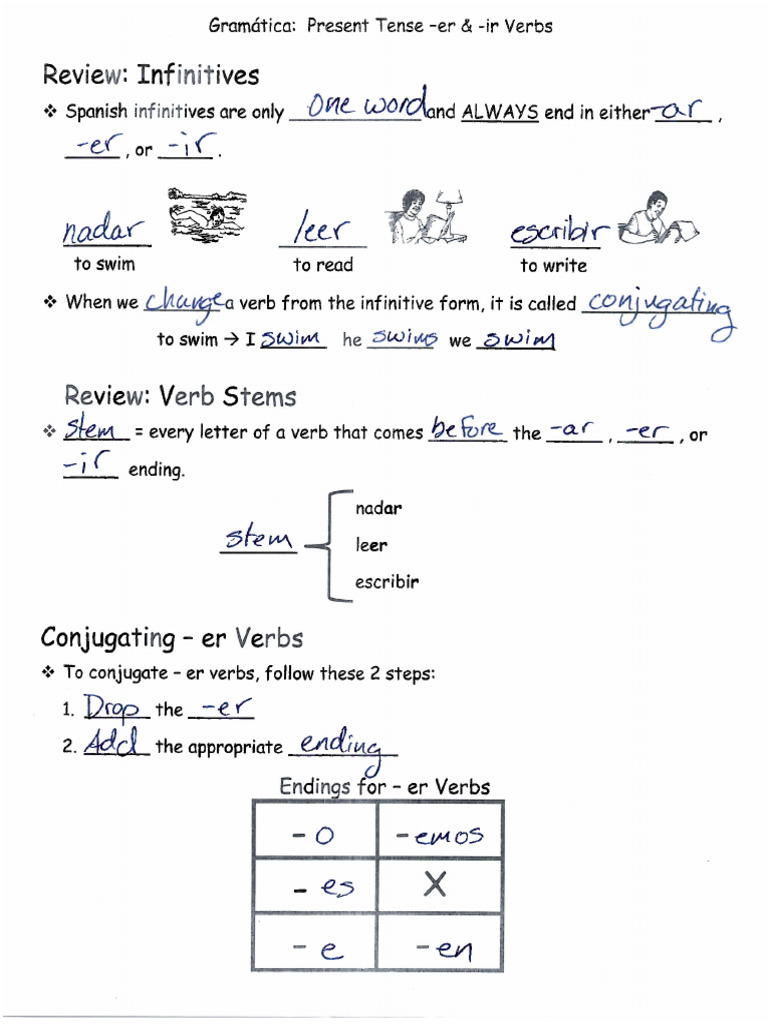 Gramática: Present Tense –er & -ir Verbs
Review: Infinitives
❖ Spanish infinitives are only one word and ALWAYS end in either -ar ,
-er , or -ir .
nadar leer escribir
to swim to read to write
❖ When we change a verb from the infinitive form, it is called conjugating
to swim → I swim he swims we swim
Review: Verb Stems
❖ stem = every letter of a verb that comes before the -ar , -er , or
-ir ending.
nadar
stem leer
escribir
Conjugating – er Verbs
❖ To conjugate – er verbs, follow these 2 steps:
1. Drop the -er
2. Add the appropriate ending
Endings for – er Verbs
-o -emos
-es X
-e -en